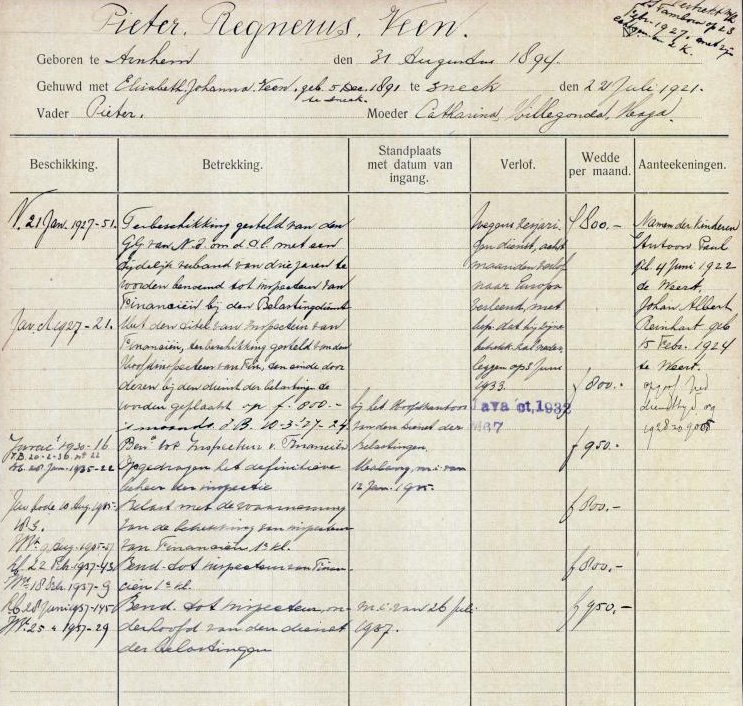 Pieter, Regnerus, Veen.
Vertrekt m/k
ss Tambora op 23
Febr. 1927, met zijn
echtgen. en 2 K.
Geboren te Arnhem den 31 Augustus 1894.
Gehuwd met Elisabeth Johanna Veen, geb. 5 Dec. 1891 te Sneek den 22 Juli 1921.
te Sneek.
Vader Pieter. Moeder Catharina, Hillegonda, Haga.
Beschikking. Betrekking. Standplaats met datum van ingang. Verlof. Wedde per maand. Aanteekeningen.
21 Jan. 1927-51. Terbeschikking gesteld van den
GG. van N.I. om d. O.l. met een
tijdelijk verband van drie jaren te
worden benoemd tot inspecteur van
Financiën bij den Belastingdienst
Jav. 1927-21. Met den titel van Inspecteur van
Financiën, ter beschikking gesteld van den
Hoofdinspecteur van Fin., ten einde door
dezen bij den dienst der belastingen te
worden geplaatst op f. 800.-
's maands d.B. 10-3-27-27
Javacrt 1930-16. Ben. tot Inspecteur v. Financiën
T.B. 20-2-36 22
28 Jan. 1935-22 Opgedragen het definitieve
beheer der inspectie
Jav. bode 10 Aug. 1935. Belast met de waarneming
van de betrekking van inspecteur
9 Aug. 1935 van Financiën 1e kl.
22 Feb. 1937-43 Bend. tot inspecteur van Finan-
18 Feb. 1937-9 ciën 1e kl.
28 Juni 1937-145 Bend. tot inspecteur, on-
25 " 1937-29 derhoofd van den dienst
der belastingen
bij het Hoofdkantoor
van den dienst der
Belastingen.
m.i. van
12 Jan. 1935.
m.i. van 26 Juli
1937.
wegens
gen dienst, acht
maanden verlof
naar Europa
verleend, met
bep. dat hij zijne
betrekk. zal neder-
leggen op 3 Juni
1933.
Java ct, 1932
M 37
f 800,-
f 800.-
f 950.-
f 800.-
f 800.-
f 950,-
Namen der kinderen
Antoon Paul
geb. 4 Juni 1922
te Weert.
Johan Albert
Reinhart geb
15 Febr. 1924
te Weert.
opgaaf Ned
diensttijd